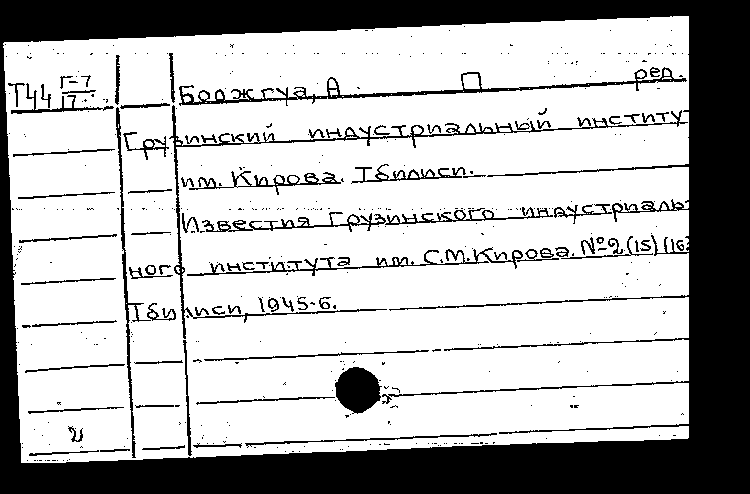 Т44 Г-7 Боджгуа, А П ред.
17
Грузинский индустриальный институ
им. Кирова. Тбилиси.
Известия Грузинского индустриаль
ного института им. С.М.Кирова. №2(15)(16)
Тбилиси, 1945-6.